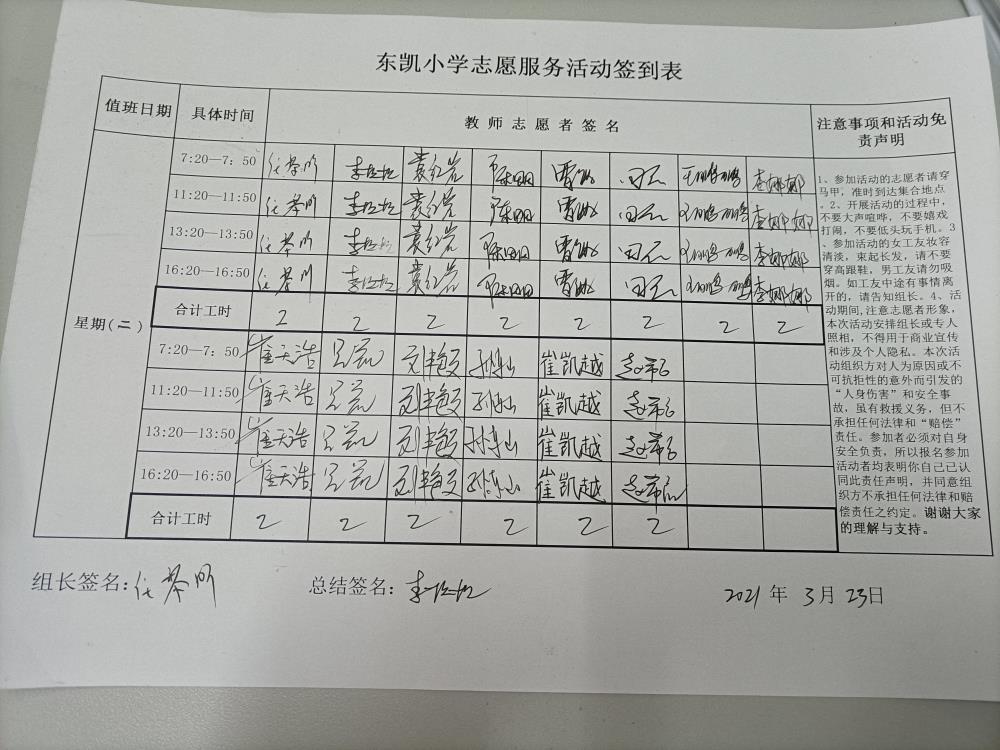 东凯小学志愿服务活动签到表
值班日期 具体时间 教师志愿者签名 注意事项和活动免责声明
星期(二)
7:20—7:50 袁红岩 雷 田 李娜娜
11:20—11:50 袁红岩 雷 田 李娜娜
13:20—13:50 袁红岩 雷 田 李娜娜
16:20—16:50 袁红岩 雷 田 李娜娜
合计工时 2 2 2 2 2 2 2 2
7:20—7:50 崔天浩 刘艳 崔凯越
11:20—11:50 崔天浩 刘艳 崔凯越
13:20—13:50 崔天浩 刘艳 崔凯越
16:20—16:50 崔天浩 刘艳 崔凯越
合计工时 2 2 2 2 2 2
1、参加活动的志愿者请穿
马甲,准时到达集合地点
。2、开展活动的过程中,
不要大声喧哗,不要嬉戏
打闹,不要低头玩手机。3
、参加活动的女工友妆容
清淡,束起长发,请不要
穿高跟鞋,男工友请勿吸
烟。如工友中途有事情离
开的,请告知组长。4、活
动期间,注意志愿者形象,
本次活动安排组长或专人
照相,不得用于商业宣传
和涉及个人隐私。本次活
动组织方对人为原因或不
可抗拒性的意外而引发的
“人身伤害”和安全事
故,虽有救援义务,但不
承担任何法律和“赔偿”
责任。参加者必须对自身
安全负责,所以报名参加
活动者均表明你自己已认
同此责任声明,并同意组
织方不承担任何法律和赔
偿责任之约定。谢谢大家
的理解与支持。
组长签名: 总结签名: 2021年3月23日